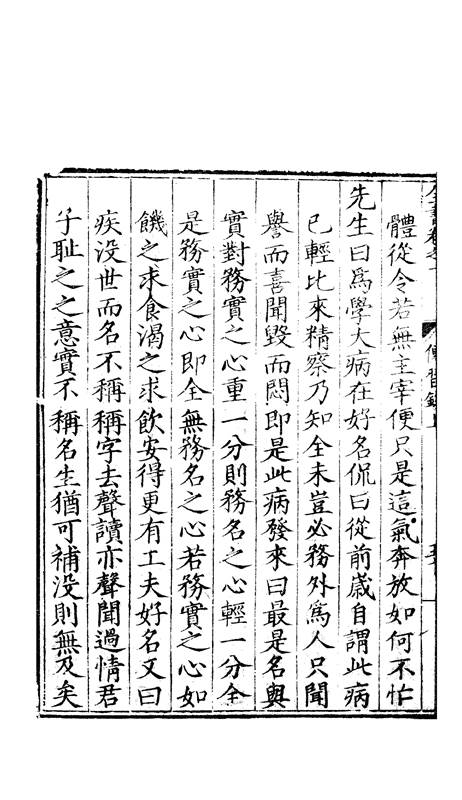 體從令若無主宰便只是這氣奔放如何不忙
先生曰爲學大病在好名侃曰從前歲自謂此病
已輕比來精察乃知全未豈必務外爲人只聞
譽而喜聞毀而悶即是此病發來曰最是名與
實對務實之心重一分則務名之心輕一分全
是務實之心即全無務名之心若務實之心如
饑之求食渴之求飲安得更有工夫好名又曰
疾没世而名不稱稱字去聲讀亦聲聞過情君
子耻之之意實不稱名生猶可補没則無及矣